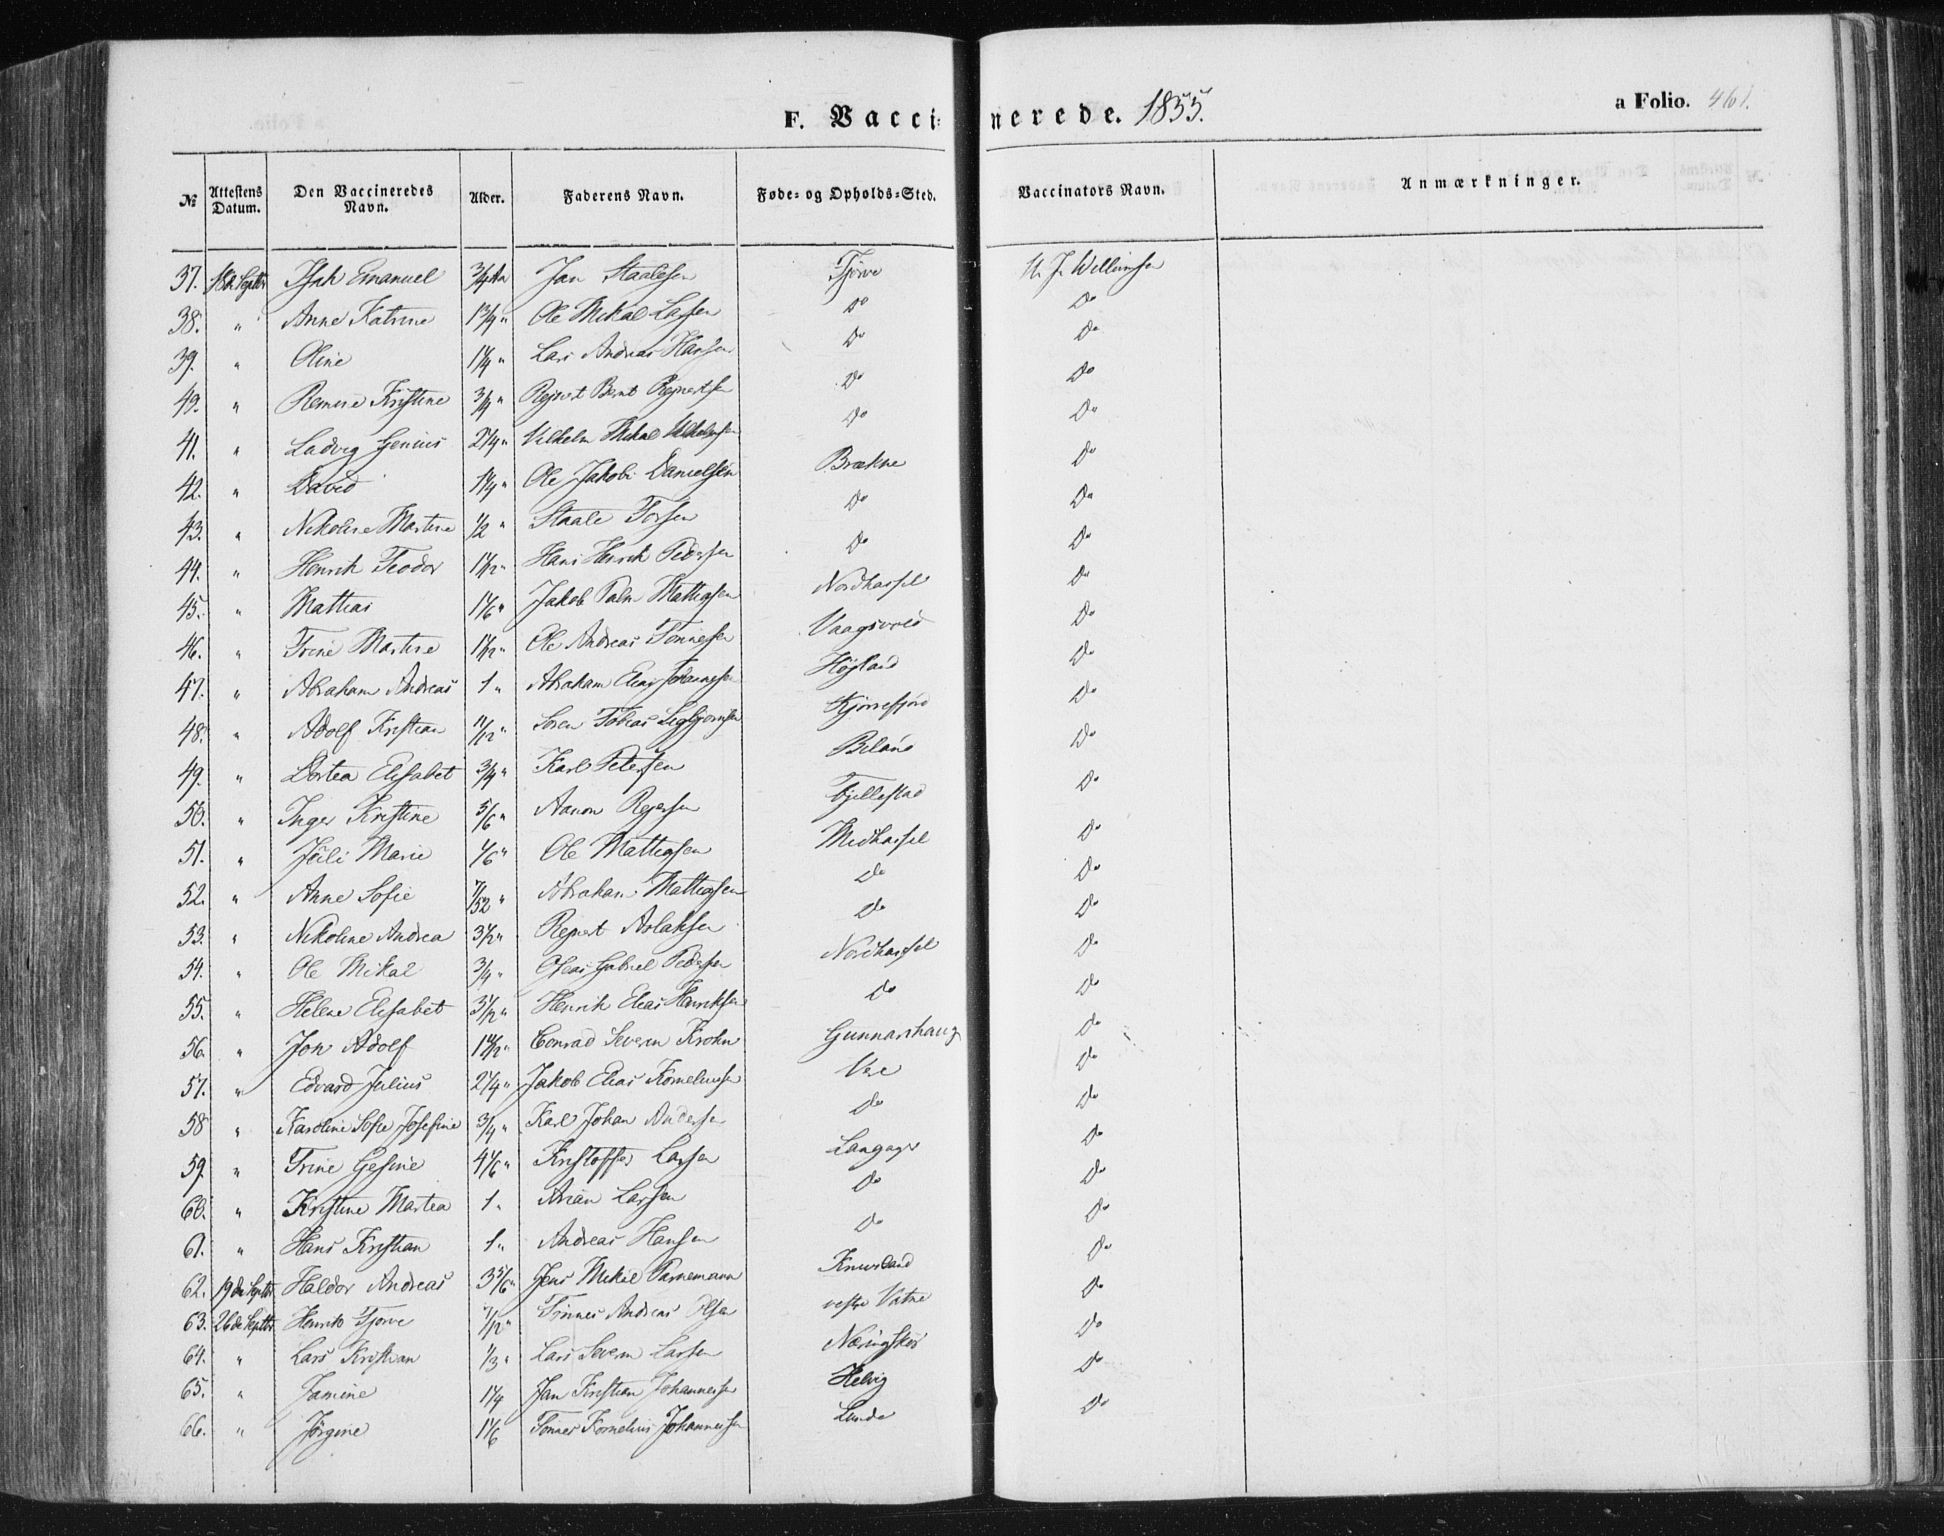 F. Vaccinerede. 1855.
a Folio. 461.
№ Attestens Datum. Den Vaccineredes Navn. Alder. Faderens Navn. Føde- og Opholds-Sted. Vaccinators Navn. Anmærkninger.
37. 18de Septbr Isak Emanuel 3/4 Aar Jan Staalesen Tjørve
38. " Anne Katrine 1 3/4 " Ole Mikal Larsen Do Do
39. " Oline 1 1/4 " Lars Andreas Hansen Do Do
40. " Remine Kristine 3/4 " Rejnert Bernt Rejnertsen Do Do
41. " Ladvig Genius 2 1/4 " Vilhelm Mikal Vilhelmsen Do Do
42. " David 1 1/4 " Ole Jakobi Danielsen Brækne Do
43. " Nikoline Martine 1/2 " Staale Torsen Do Do
44. " Henrik Teodor 1 1/12 " Hans Henrik Pedersen Do Do
45. " Mattias 1 1/6 " Jakob Palm Mattiasen Nordhassel Do
46. " Trine Martine 1 1/12 " Ole Andreas Tønnesen Vaagsvold Do
47. " Abraham Andreas 1 " Abraham Elias Johannesen Højland Do
48. " Adolf Kristian 11/12 " Søren Tobias Sigbjørnsen Kjørrefjord Do
49. " Dortea Elisabet 3/4 " Karl Petersen Do
50. " Inger Kristine 5/6 " Aanon Rejersen Fjellestad Do
51. " Joili Marie 1/6 " Ole Mattiasen Midhassel Do
52. " Anne Sofie 7/52 " Abraham Mattiasen Do Do
53. " Nikoline Andrea 3 1/2 " Rejnert Aslaksen Do Do
54. " Ole Mikal 3/4 " Oseas Gabriel Pedersen Nordhassel Do
55. " Helene Elisabet 3 1/2 " Henrik Elias Henriksen Do Do
56. " Jon Adolf Conrad Severin Krohn Gunnarshaug Do
57. " Edvard Julius 2 1/4 " Jakob Elias Korneliussen Vere Do
58 " Karoline Sofie Josefine 3/4 " Karl Johan Andersen Do Do
59. " Trine Gesine 4 1/6 " Kristoffer Larsen Langager Do
60. " Kristine Martea 1 " Arian Larsen Do Do
61. " Hans Kristian 1 " Andreas Hansen Do Do
62. 19de Septbr Haldor Andreas 3 5/6 " Jens Mikal Parnemann Knivsland Do
63. 26de Septbr Henrik Tjørve 7/12 " Tønnes Andreas Olsen vestre Vatne Do
64. " Lars Kristian 1/3 " Lars Severin Larsen Do
65. " Jamine 1 1/4 Jan Kristian Johannessen Helvig Do
66. " Jørgine 1 1/6 Tønnes Kornelius Johannessen Lunde Do